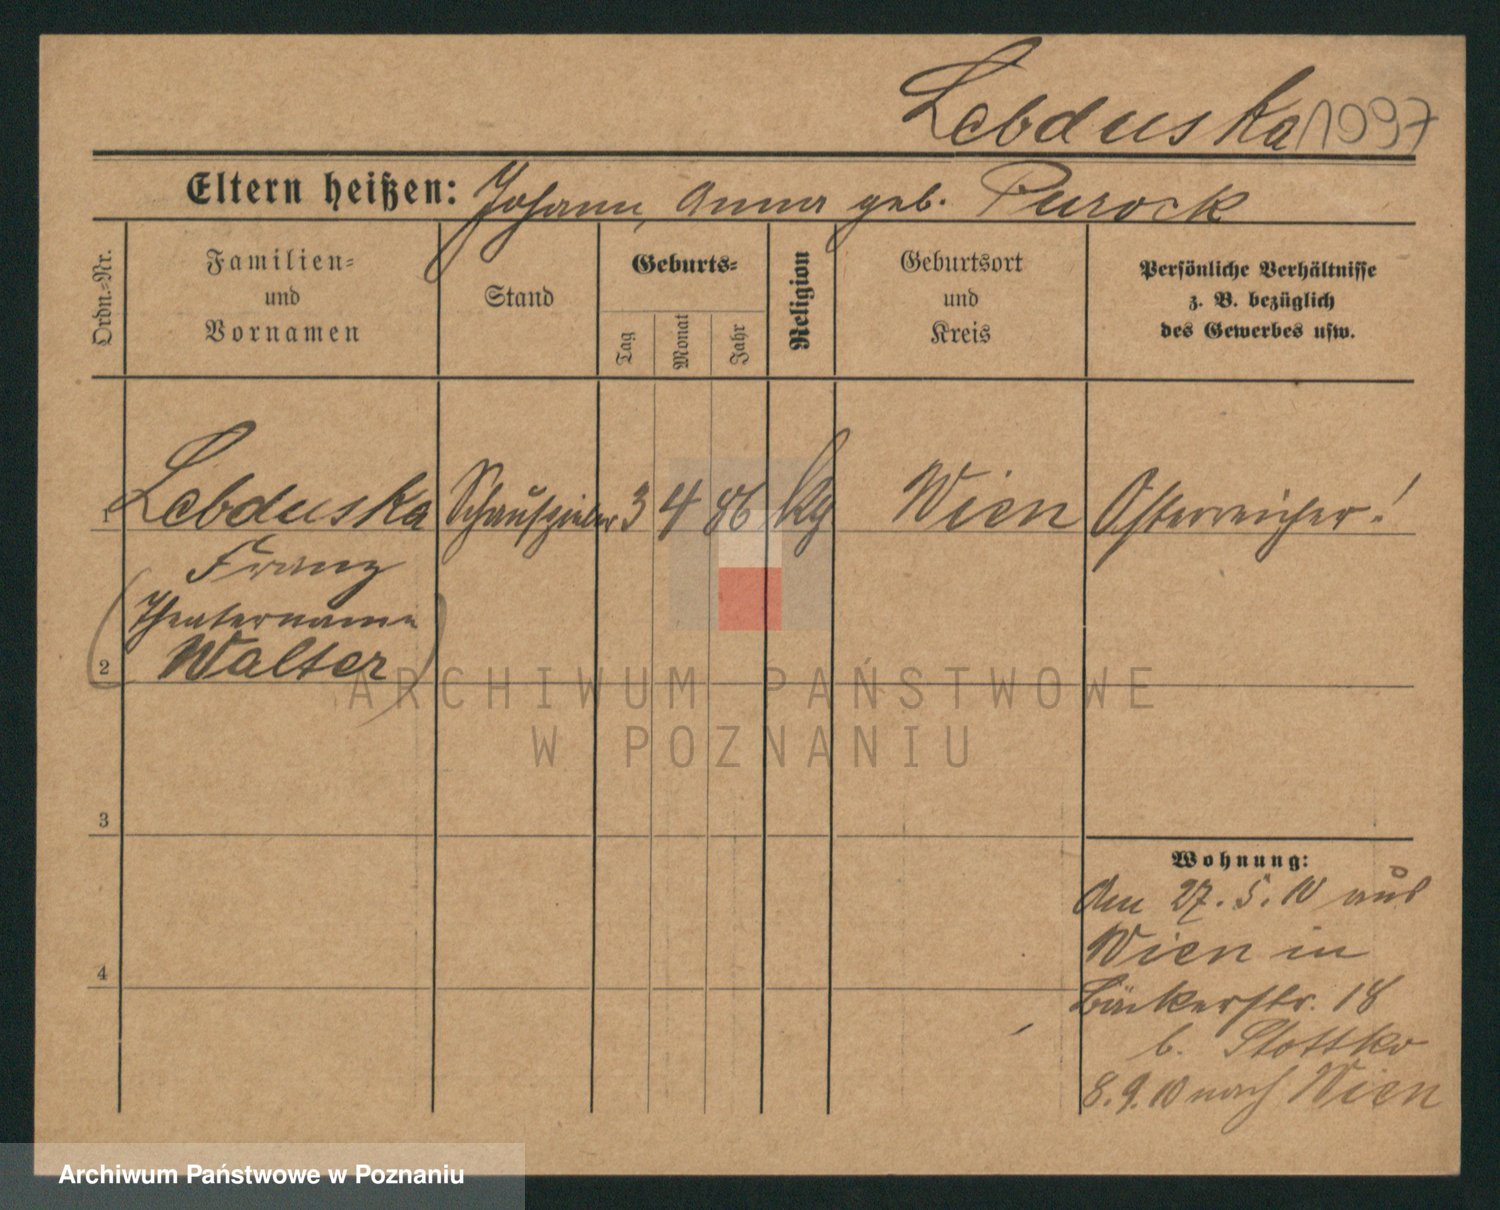 Lebduska 1097
Eltern heißen: Johann, Anna geb. Purock
Ordn.-Nr.
Familien-
und
Vornamen
Stand
Geburts-
Tag
Monat
Jahr
Religion
Geburtsort
und
Kreis
Persönliche Verhältnisse
z. B. bezüglich
des Gewerbes usw.
1 Lebduska Schauspieler 3 4 86 kg Wien Österreicher!
Franz
(Theatername
2 Walter)
ARCHIWUM PAŃSTWOWE
W POZNANIU
3
Wohnung:
Am 27. 5. 10 aus
Wien in
4
Bäckerstr. 18
b. Stottko
8. 9. 10 nach Wien
Archiwum Państwowe w Poznaniu